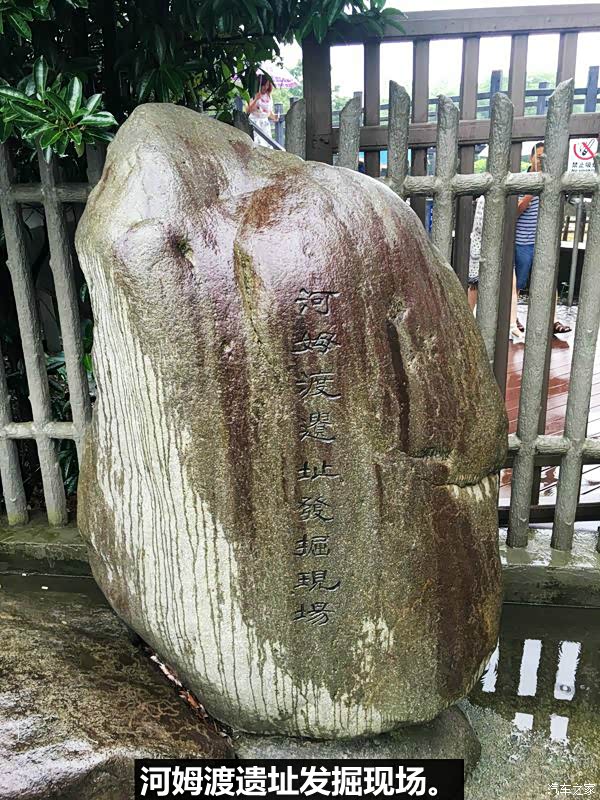 禁止吸烟
河姆渡遺址發掘現場
河姆渡遗址发掘现场。
汽车之家